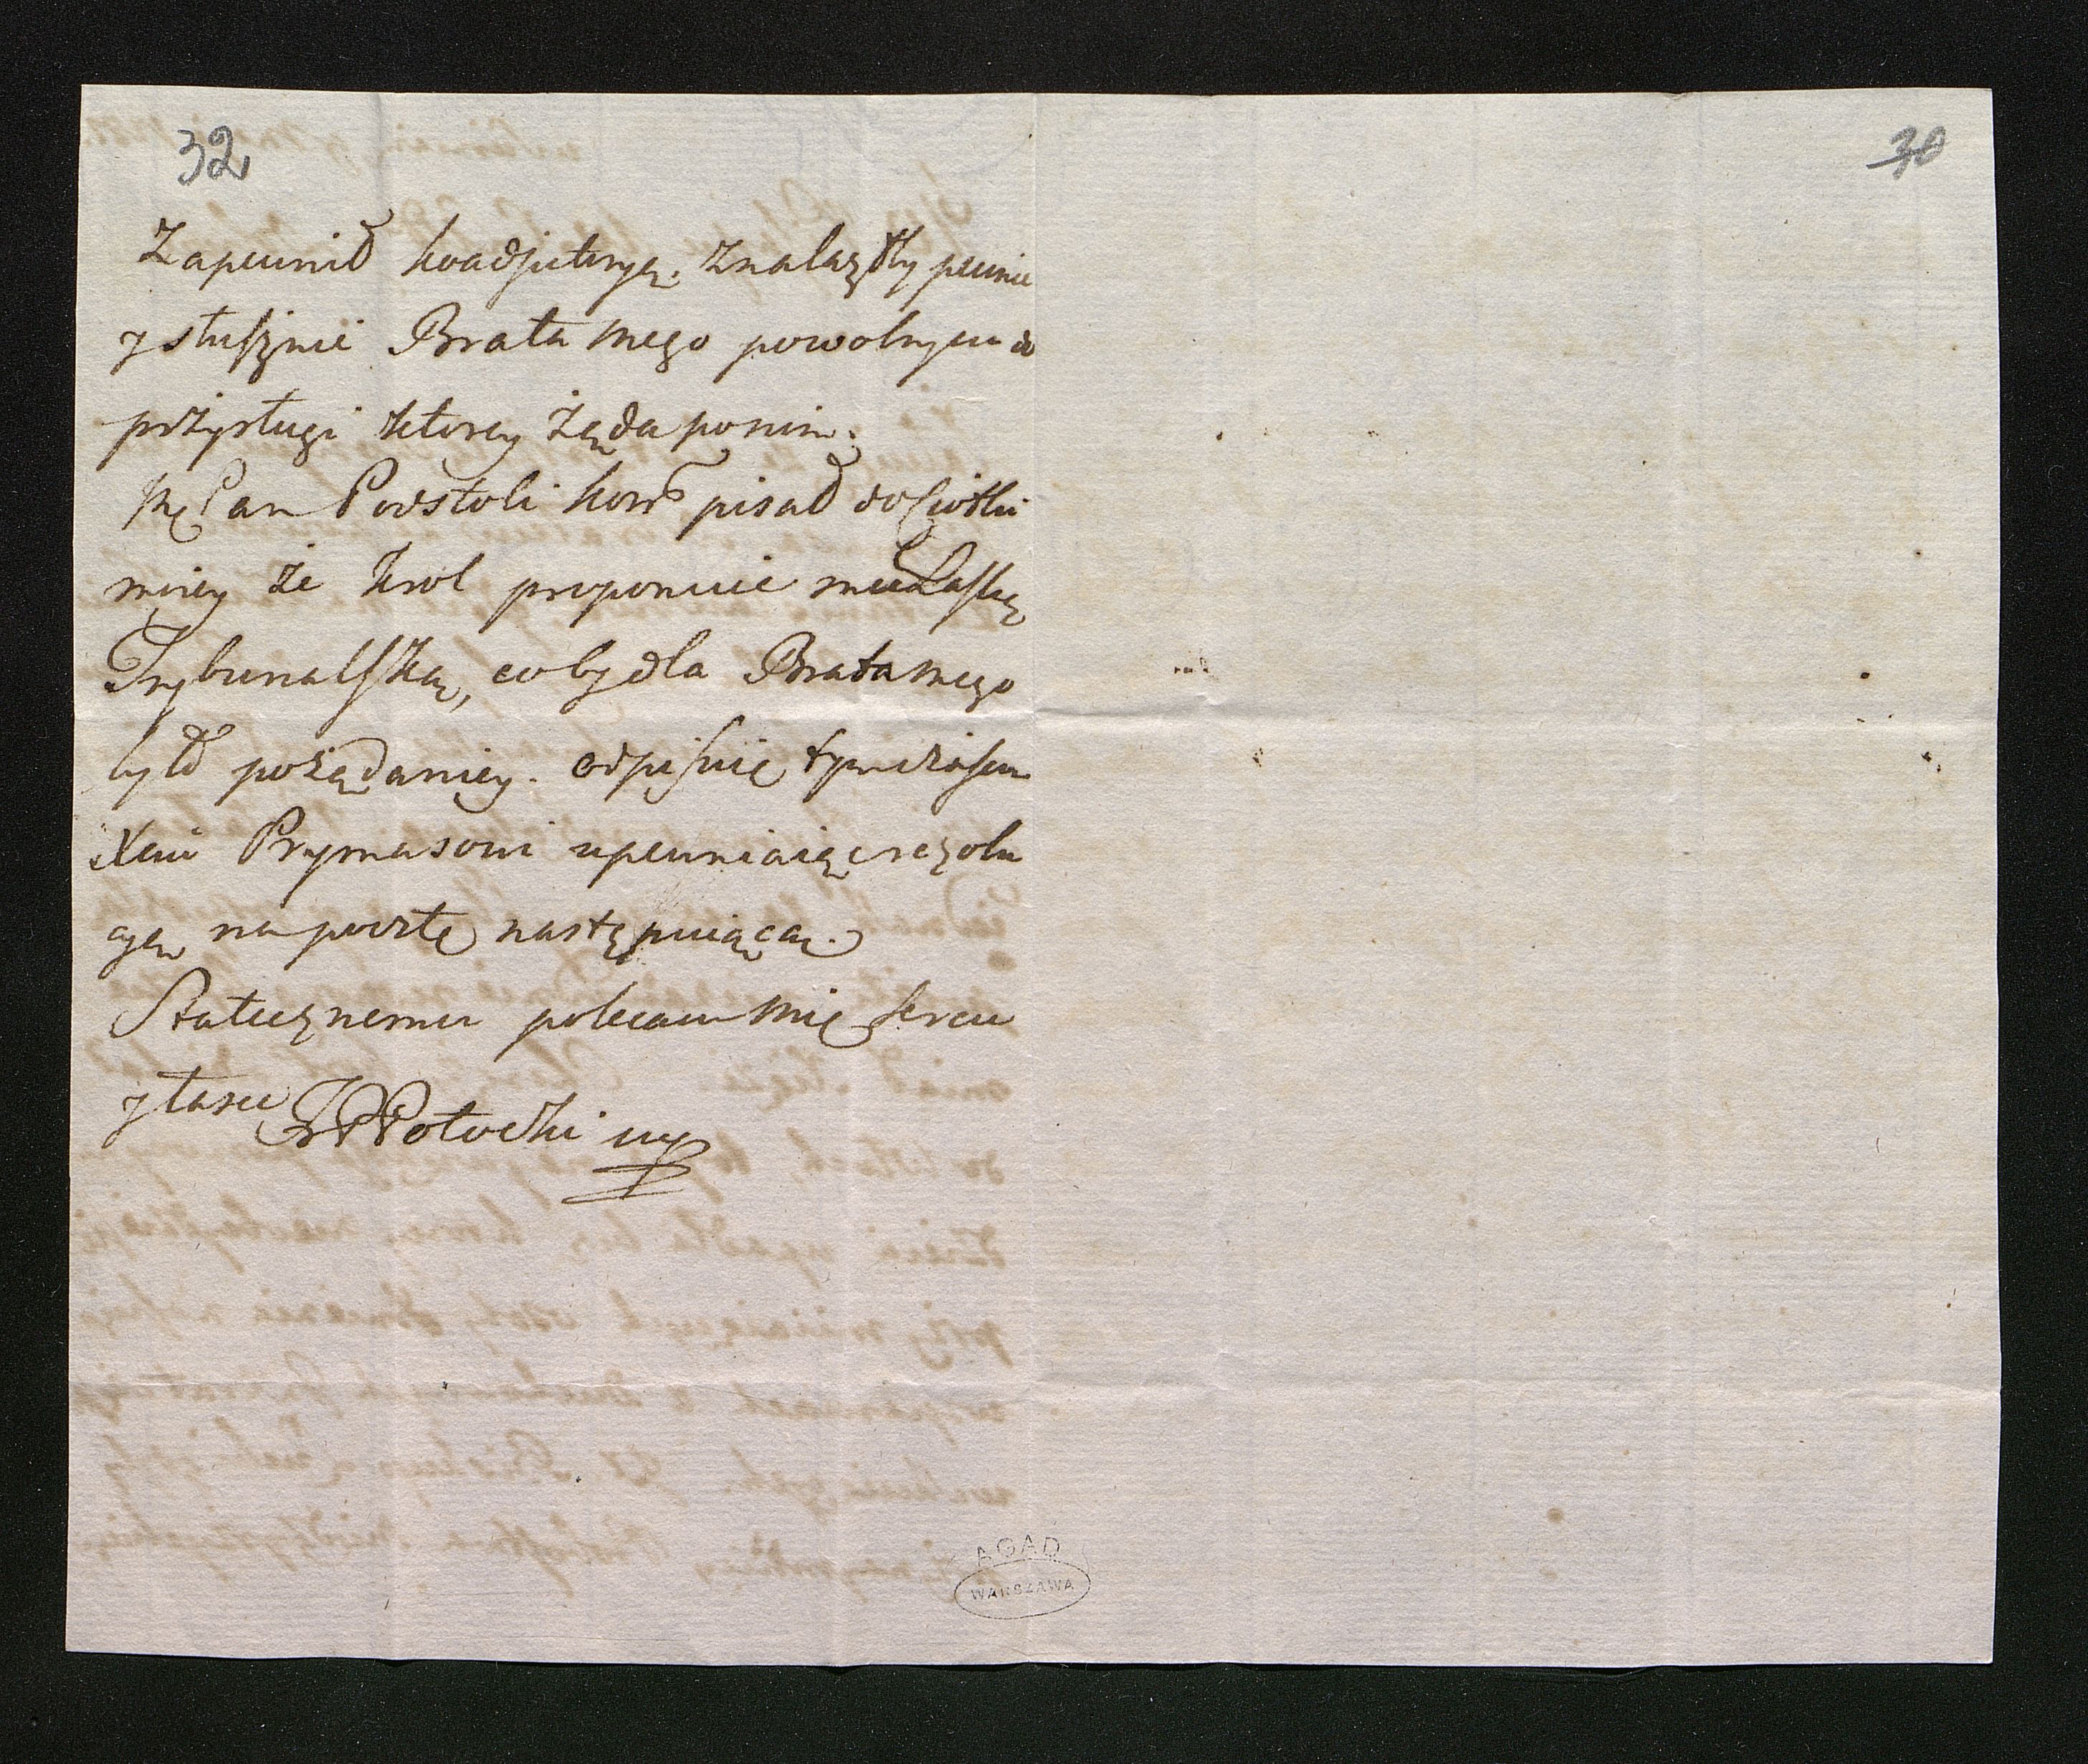 32
30
Zapewnił koadjutoryą. znalazłby pewnie
y słusznie Brata mego powolnym do
przysługi ktorey żąda po nim.
JMę Pan Podstoli kor: pisał do Ciotki
moiey że Krol proponuie mu Laskę
Trybunalską, coby dla Brata mego
było pożądaniey. odpisuię tymczasem
Xciu Prymasowi upewniaiąc rezolu
cyą na pocztę następuiącą.
Statecznemu polecam mię sercu
y łasce Potocki mp
AGAD
WARSZAWA